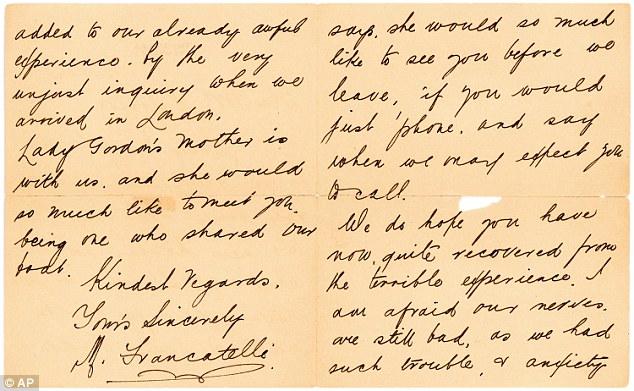 says, she would so much
like to see you before we
leave, if you would
just 'phone. and say
when we may expect you
to call.
We do hope you have
now, quite recovered from
the terrible experience. I
am afraid our nerves.
are still bad, as we had
such trouble, & anxiety
added to our already awful
experience. by the very
unjust inquiry when we
arrived in London.
Lady Gordon's Mother is
with us. and she would
so much like to meet you.
being one who shared our
boat.
Kindest Regards.
Your's Sincerely
M. Francatelli.
© AP